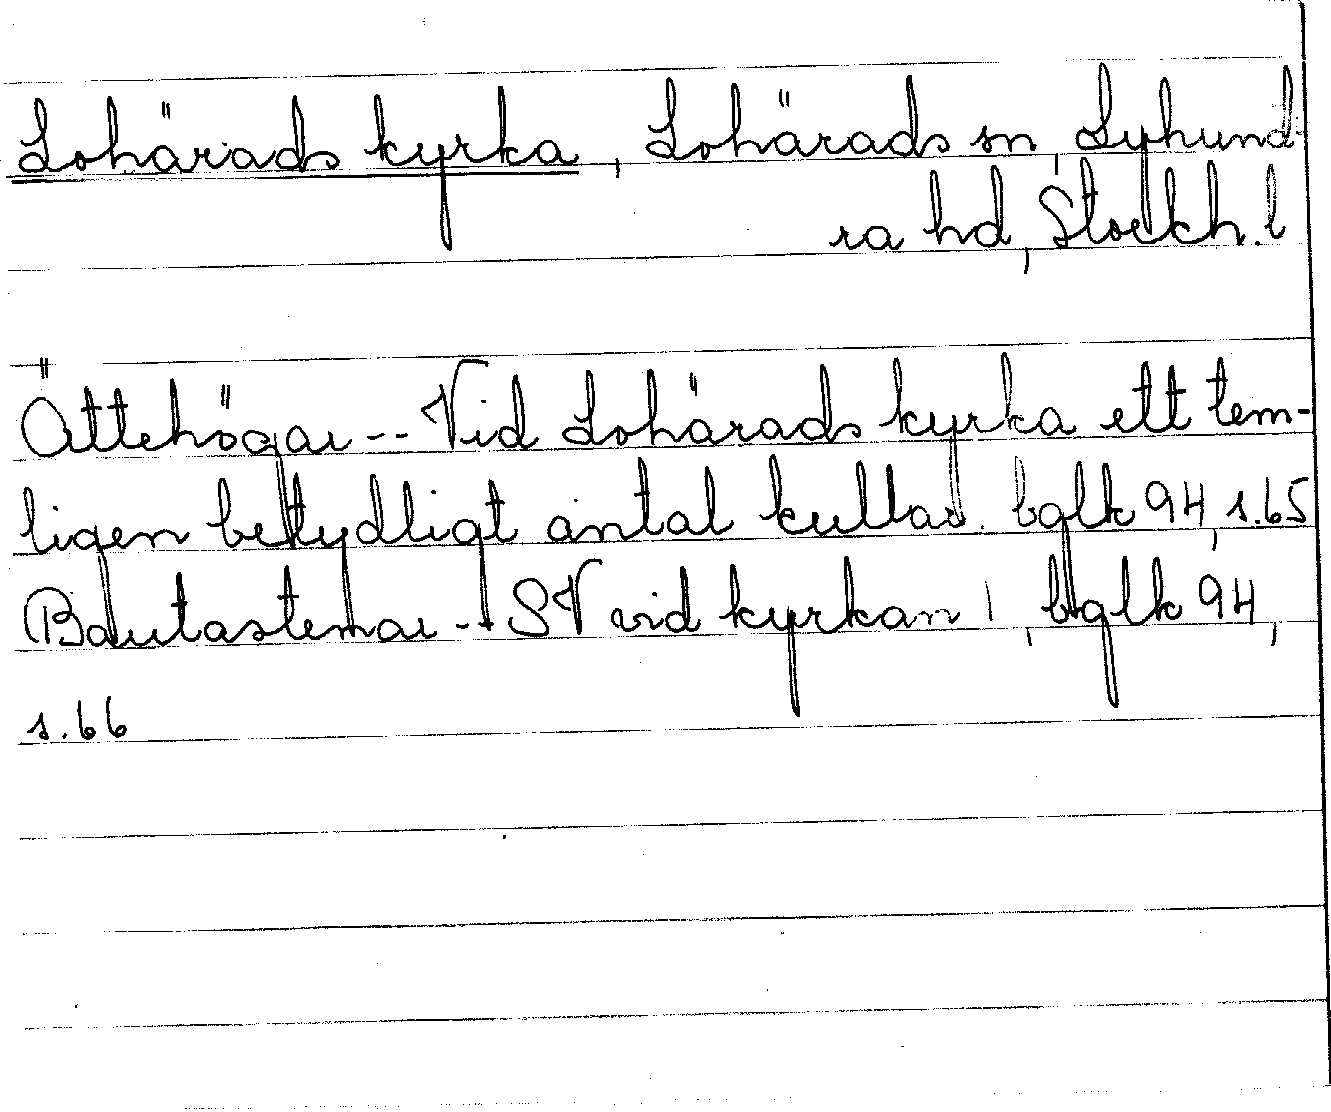 Lohärads kyrka, Lohärads sn, Lyhund-
ra hd, Stockh. l
Ättehögar -- Vid Lohärads kyrka ett tem-
ligen betydligt antal kullar. bglk 94, s.65
Bautastenar -- SV vid kyrkan 1, bglk 94,
s.66